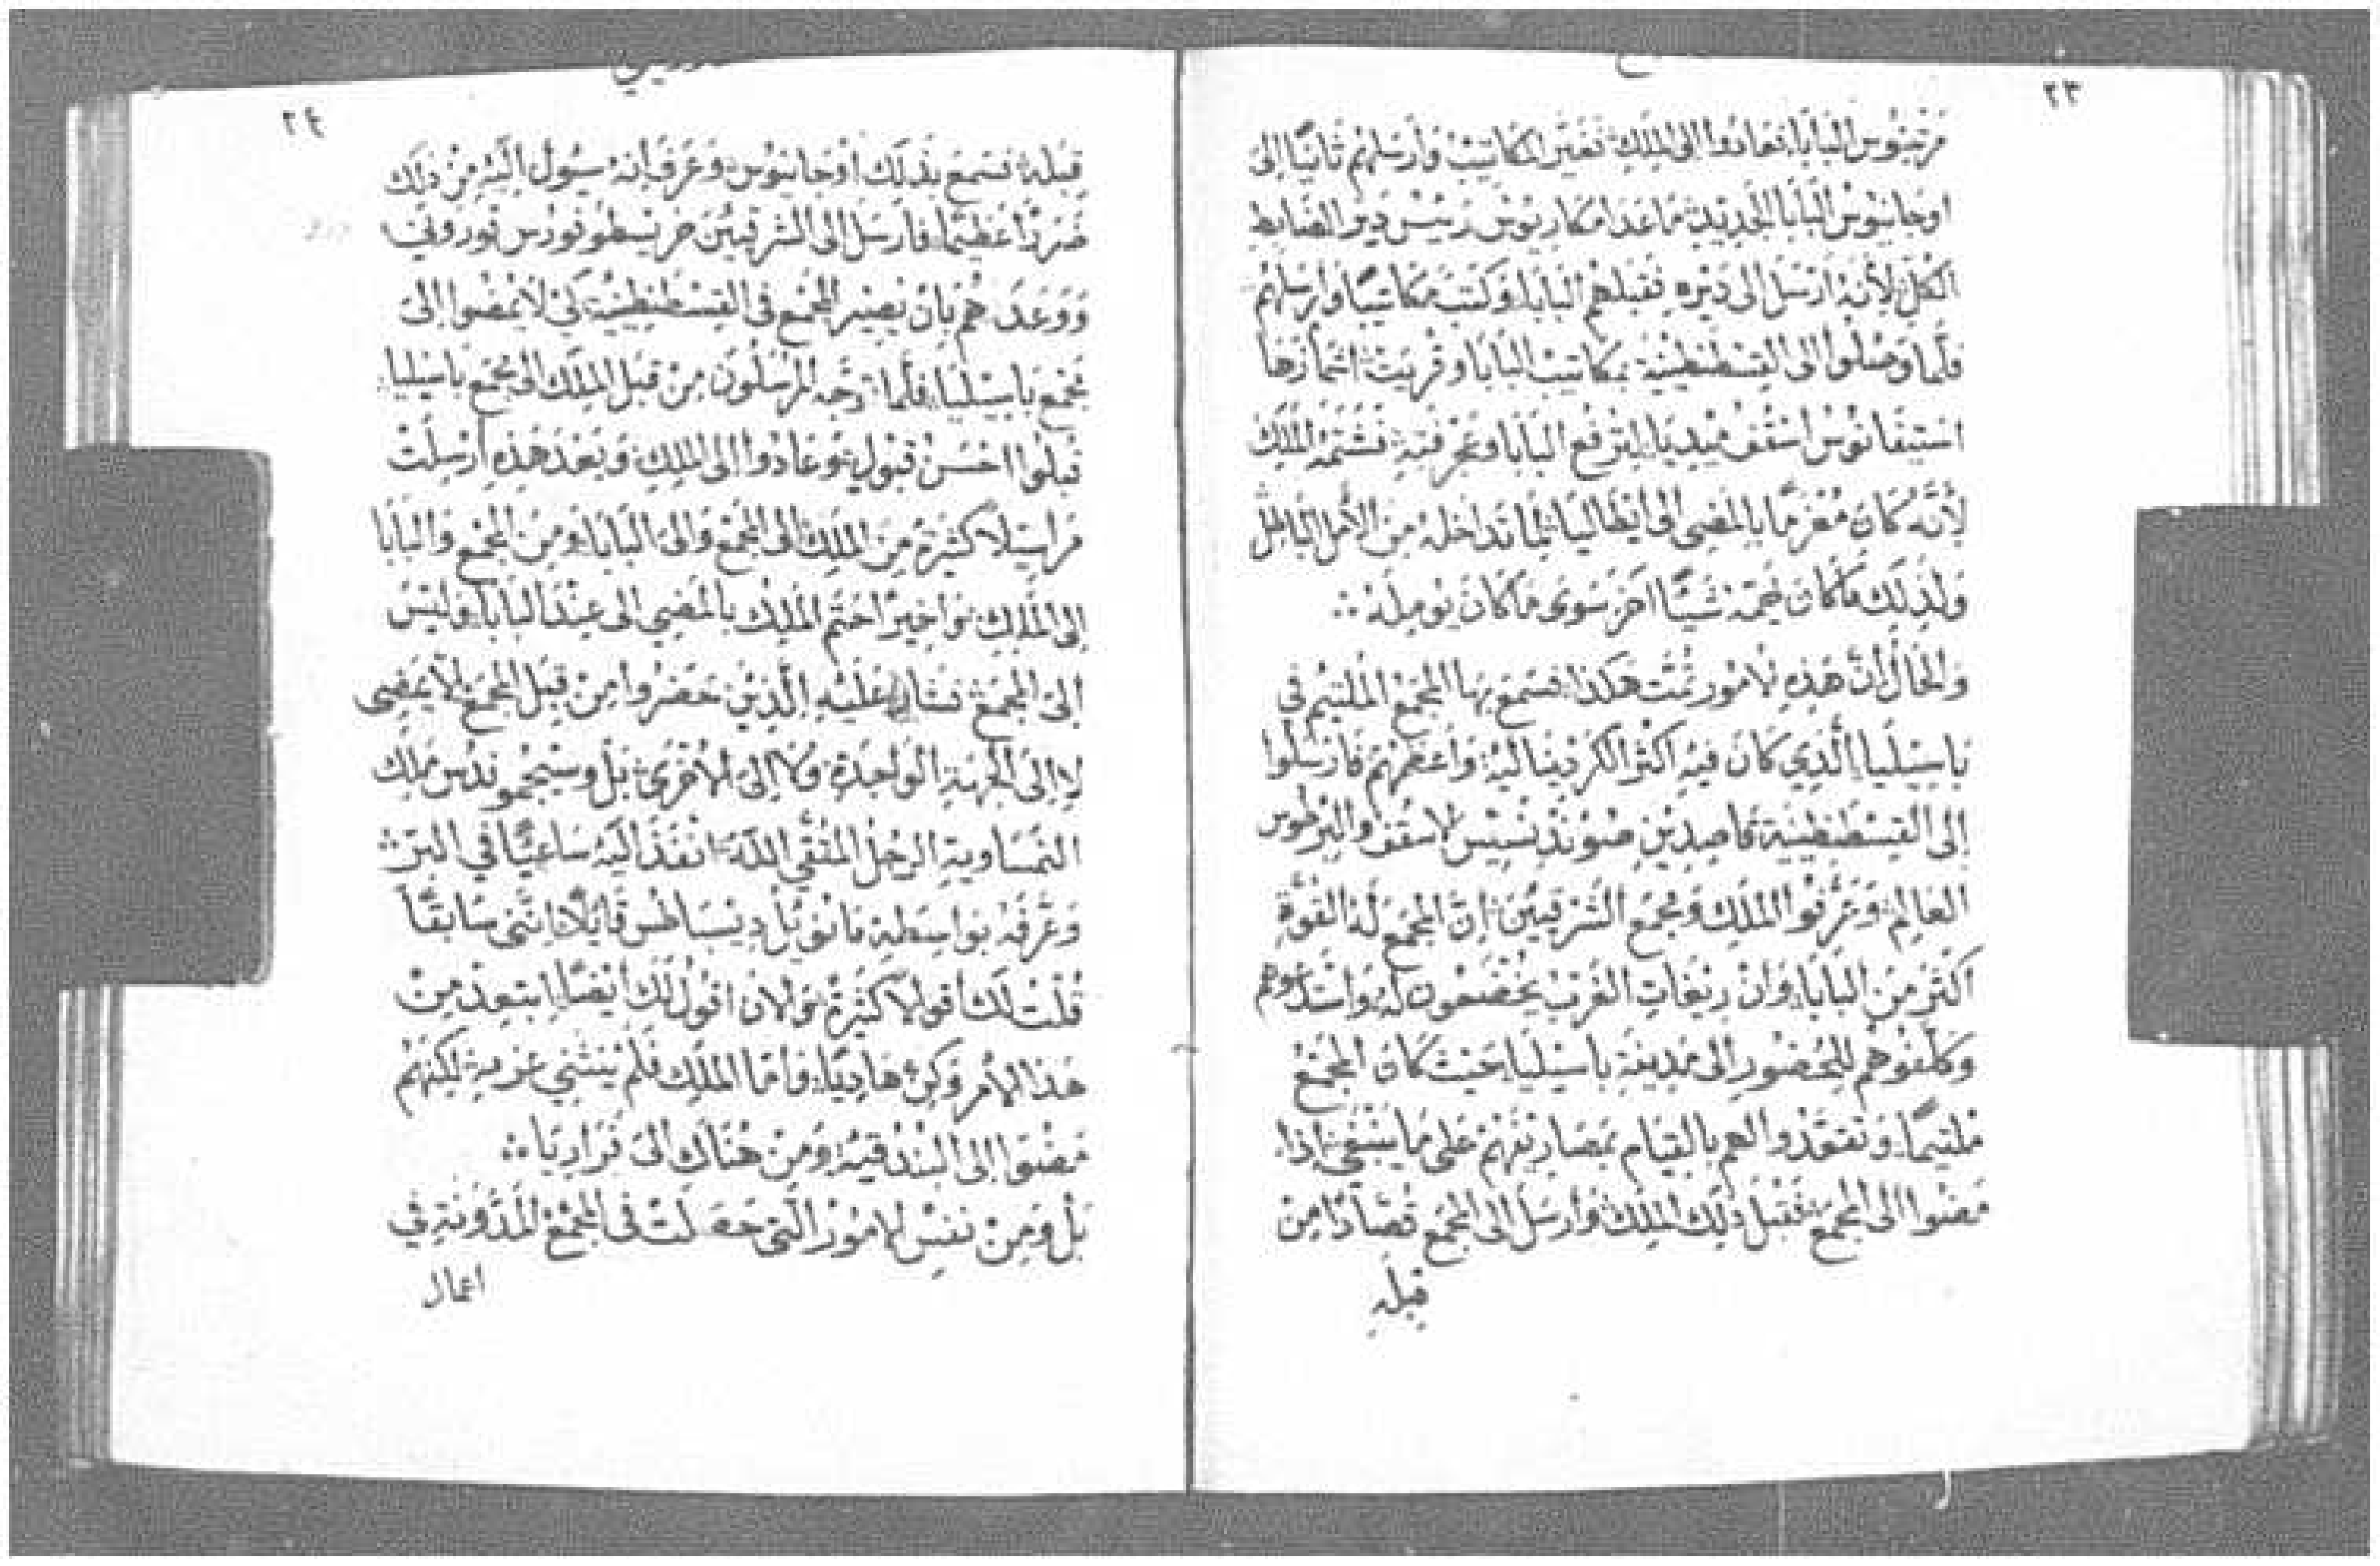 ٢٣
مرتينوس البابا فعادوا الى الملك فغير المكاتيب وارسلهم ثانيًا إلى
اوجانيوس البابا الجديد ماعدا مكاريوس رييس دير الضابط
الكل لأنه ارسل الى ديره فقبلهم البابا وكتب مكاتيبًا وارسلهم
فلما وصلوا الى القسطنطينية بمكاتيب البابا وقريت اشمأزها
استيفانوس اسقف ميديا لترفع البابا وعجرفته فشتمه الملك
لأنه كان مغرمًا بالمضي الى ايطاليا لما تداخله من الأمل الباطل
ولذلك ما كان يهمه شيًا اخر سوى ما كان يومله
والحال أنَّ هذه لامور تمَّت هكذا فسمع بها المجمع الملتيم في
باسيليا الَّذي كان فيه اكثر الكرديناليه وأعظمهم فارسلوا
إلى القسطنطينية قاصدين ضوندنسيس لاسقف والبرطوس
العالم وعرَّفوا الملك ومجمع الشرقيين إنَّ المجمع له القوَّة
أكثر من البابا وان ريغات الغرب يخضعون له واستدعوهم
وكلفوهم للحضور الى مدينة باسيليا بحيث كان المجمع
ملتيمًا وتعهَّدوا لهم بالقيام بمصاريفهم على ما ينبغي إذا
مضوا الى المجمع فقبل ذلك الملك وارسل الى المجمع قصَّادًا من
قبله
٢٤
قبله فسمع بذلك اوجانيوس وعرف إنه سيول إليه من ذلك
ضررًا عظيمًا فارسل الى الشرقيين خريسطوفورس
ووعدهم بان يصير المجمع في القسطنطينية كي لا يمضوا إلى
مجمع باسيليا فلما توجَّه المرسلون من قبل الملك الى مجمع باسيليا
قبلوا احسن قبول وعادوا الى الملك وبعد هذه أرسلت
مراسيلًا كثيرة من الملك الى المجمع والى البابا ومن المجمع والبابا
إلى الملك واخيرًا احتم الملك بالمضي الى عند البابا وليس
إلى المجمع فشار عليه الَّذين حضروا من قبل المجمع لا يمضي
لا إلى الجهة الواحدة ولا إلى الأخرى بل وسيجموندس ملك
النمساوية الرجل المتقي الله انفذ اليه ساعيًا في البر
وعرَّفه بواسطة مانويل ديسباطس قايلًا إنَّني سابقًا
قلت لك أقوالًا كثيرة ولان اقول لك ايضًا ابتعد من
هذا الأمر وكن هاديًا وامَّا الملك فلم ينثني عزمه لكنهم
مضوا إلى البندقية ومن هناك الى فراريا
بل ومن نفس لامور الَّتي حصلت في المجمع المدوَّنة في
اعمال